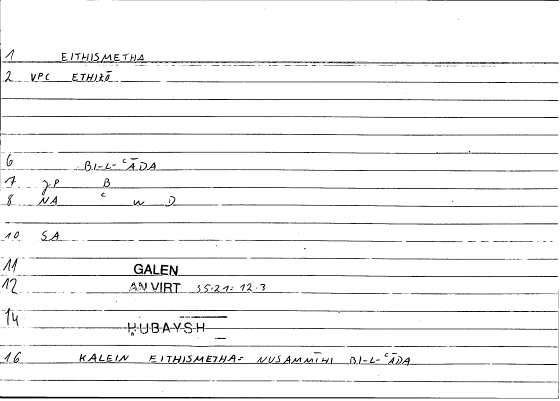 1 EITHISMETHA
2 VPC ETHIZŌ
6 BI-L-ʿĀDA
7 gP B
8 NA ʿ w D
10 SA
11 GALEN
12 AN VIRT 35.21= 12.3
14 ḤUBAYSH
16 KALEIN EITHISMETHA= NUSAMMĪHI BI-L-ʿĀDA